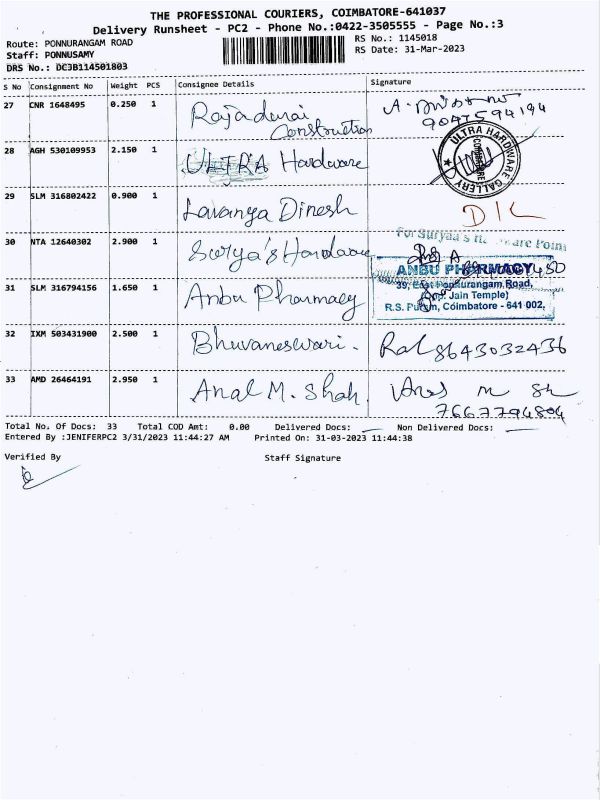 THE PROFESSIONAL COURIERS, COIMBATORE-641037
Delivery Runsheet - PC2 - Phone No.:0422-3505555 - Page No.:3
Route: PONNURANGAM ROAD
RS No.: 1145018
Staff: PONNUSAMY
RS Date: 31-Mar-2023
DRS No.: DC3B114501803
S No Consignment No Weight PCS Consignee Details Signature
27 CNR 1648495 0.250 1 Rajadurai Construction
28 AGH 530109953 2.150 1 ULTRA Hardware
ULTRA HARDWARE GALLERY
COIMBATORE
29 SLM 316802422 0.900 1 Lavanya Dinesh
30 NTA 12640302 2.900 1 Surya's Hardware
For Surya's Hardware Point
31 SLM 316794156 1.650 1 Anbu Pharmacy
ANBU PHARMACY
39, East Ponnurangam Road,
(Opp. Jain Temple)
R.S. Puram, Coimbatore - 641 002.
32 IXM 503431900 2.500 1 Bhuvaneswari. 8643032436
33 AMD 26464191 2.950 1 Anal M. Shah
7667794804
Total No. Of Docs: 33 Total COD Amt: 0.00 Delivered Docs: Non Delivered Docs:
Entered By :JENIFERPC2 3/31/2023 11:44:27 AM Printed On: 31-03-2023 11:44:38
Verified By Staff Signature